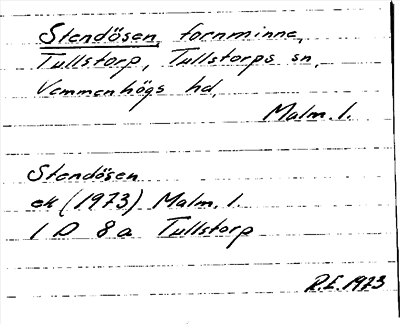 Stendösen, fornminne,
Tullstorp, Tullstorps sn,
Vemmenhögs hd,
Malm. l.
Stendösen
ek (1973) Malm. l.
1 D 8 a Tullstorp
R.E. 1973